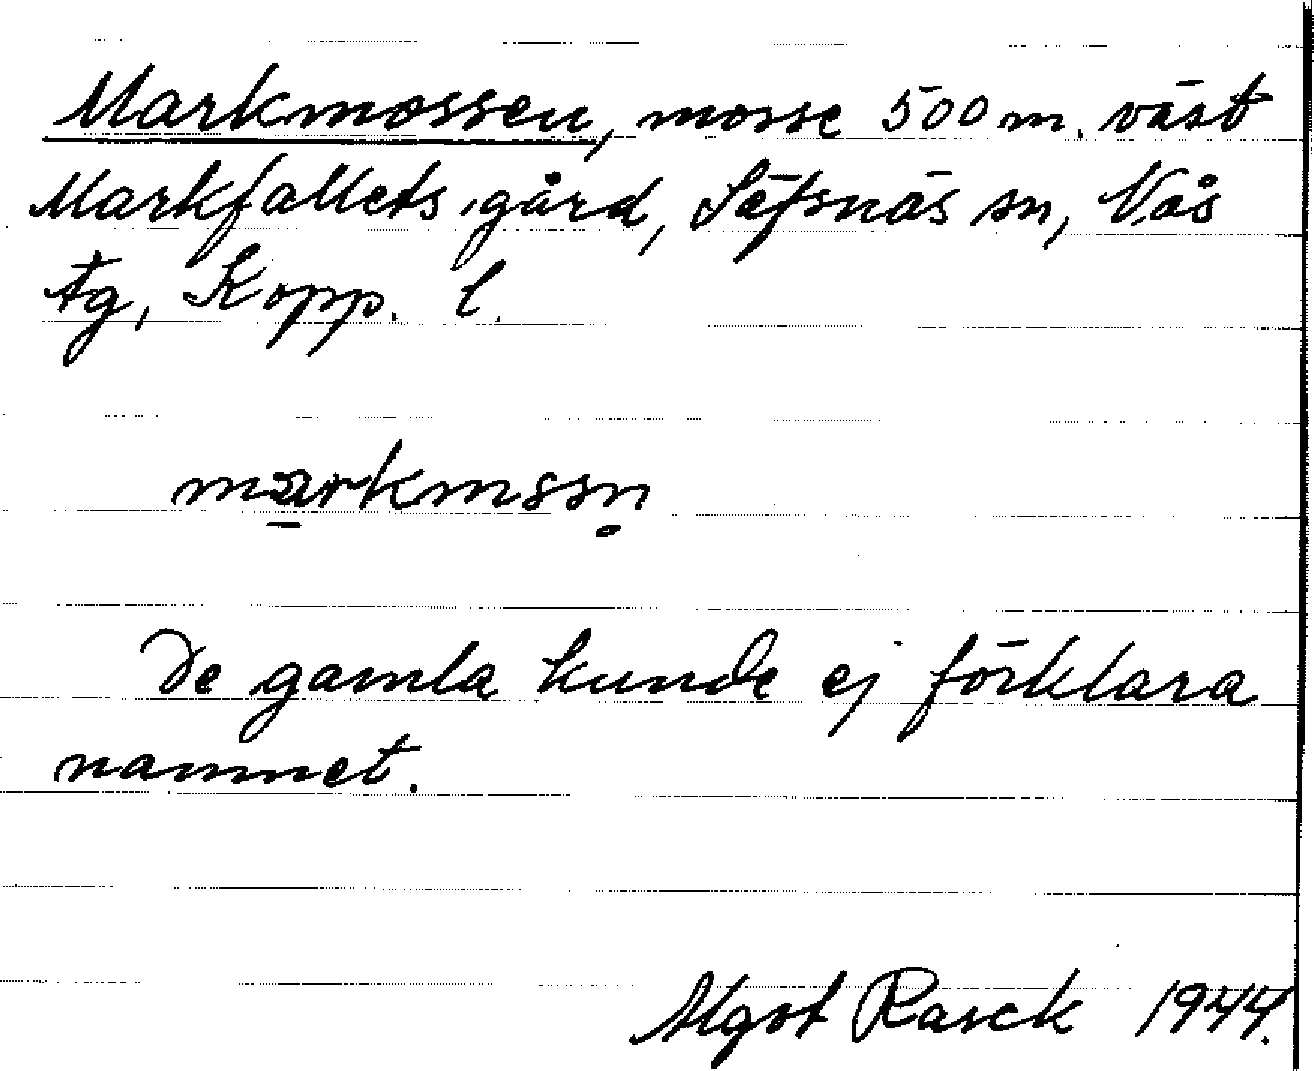 Markmossen, mosse 500 m. väst
Markfallets gård, Säfsnäs sn, Nås
tg, Kopp. l.
markmssn̥
De gamla kunde ej förklara
namnet.
Algot Rasck 1944.